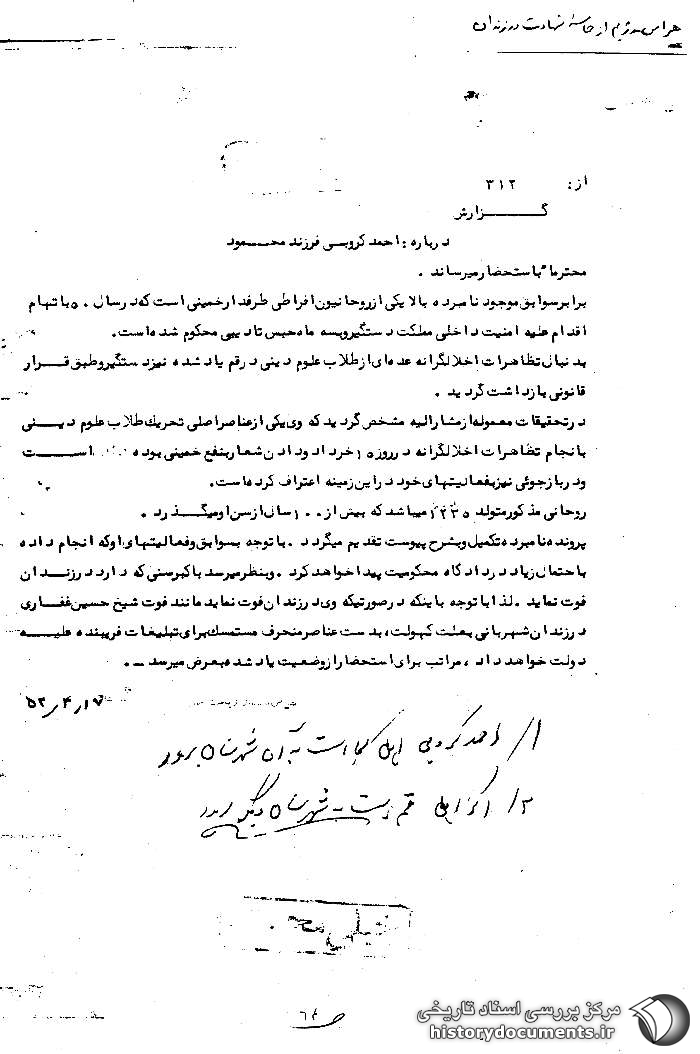 هراس رژیم از حماسهٔ شهادت در زندان
از: ۳۱۲
گـــزارش
درباره: احمد کروبی فرزند محمـود
محترما" باستحضار میرساند .
برابر سوابق موجود نامبرده بالا یکی از روحانیون افراطی طرفدار خمینی است که در سال ۵۰ باتهام
اقدام علیه امنیت داخلی مملکت دستگیر و به سه ماه حبس تادیبی محکوم شده است.
بدنبال تظاهرات اخلالگرانه عده‌ای از طلاب علوم دینی در قم یاد شده نیز دستگیر و طبق قـرار
قانونی بازداشت گردید .
در تحقیقات معموله از مشارالیه مشخص گردید که وی یکی از عناصر اصلی تحریک طلاب علوم دیـنی
بانجام تظاهرات اخلالگرانه در روز ۱۵ خرداد و دادن شعار بنفع خمینی بوده اسـت
و در بازجوئی نیز بفعالیتهای خود در این زمینه اعتراف کرده است.
روحانی مذکور متولد میباشد که بیش از ۱۰۰ سال از سن او میگـذرد .
پرونده نامبرده تکمیل و بشرح پیوست تقدیم میگردد . با توجه بسوابق و فعالیتهای او که انجام داده
باحتمال زیاد در دادگاه محکومیت پیدا خواهد کرد . و بنظر میرسد با کبر سنی که دارد در زندان
فوت نماید . لذا با توجه باینکه در صورتیکه وی در زندان فوت نماید مانند فوت شیخ حسین غفـاری
در زندان شهربانی بعلت کهولت، بدست عناصر منحرف مستمسک برای تبلیغات فریبنده علیـه
دولت خواهد داد ، مراتب برای استحضار از وضعیت یاد شده بعرض میرسد .
۱/ احمد کروبی اهل کجا است به آن شهرستان برود
۲/ اگر اهل قم است به شهرستان دیگر برود
خیلی محرمانه
ص ۶۴
مرکز بررسی اسناد تاریخی
historydocuments.ir